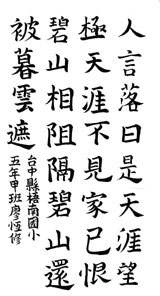 人言落日是天涯望
極天涯不見家已恨
碧山相阻隔碧山還
被暮雲遮
台中縣梧南國小
五年甲班廖恆修